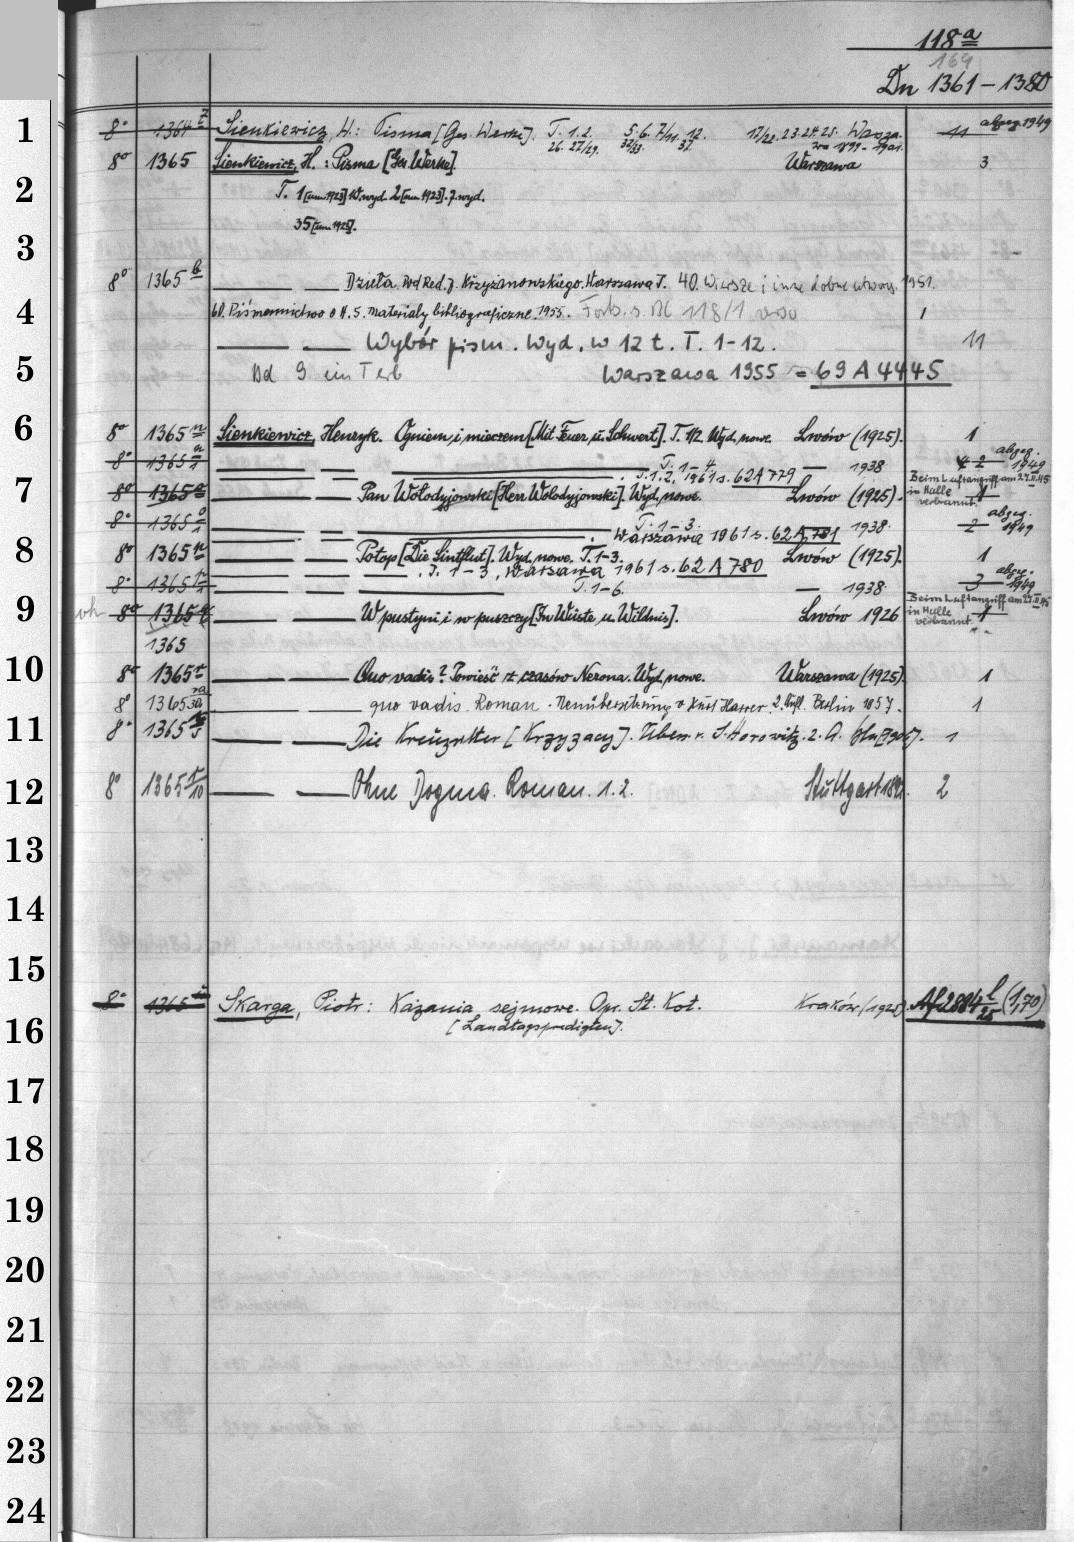 118a
169
Dn 1361 – 1380
1
8° 1364 z Sienkiewicz, H.: Pisma [Ges. Werke]. T. 1.2. 5.6. 7/11. 12. 17/20. 23.24.25. Warsza. 11 abgeg. 1949
26. 27/29. 32/33. 37. 1899 - 1901.
8° 1365 Sienkiewicz, H.: Pisma [Ges. Werke]. Warszawa 3
2
T. 1 [um 1923] 10. wyd. 2 [um 1923]. 7. wyd.
35 [um 1925].
3
8° 1365 b — — Dzieła. Pod Red. J. Krzyżanowskiego. Warszawa T. 40. Wiersze i inne drobne utwory. 1951.
4
60. Piśmennictwo o H. S. materiały bibliograficzne. 1955. Forts. s. Bl 118/1 verso 1
— — Wybór pism. Wyd. w 12 t. T. 1-12. 11
5
Bd 9 ein T erb Warszawa 1955 = 69 A 4445
6
8° 1365 n Sienkiewicz, Henryk. Ogniem i mieczem [Mit Feuer u. Schwert]. T. 1/2. Wyd. nowe. Lwów (1925). 1
8° 1365 n/1 — — — T. 1-4 — 1938 4 2 abgeg. 1949
T. 1.2. 1961 s. 62 A 779
7
8° 1365 o — — Pan Wołodyjowski [Herr Wolodyjowski]. Wyd. nowe. Lwów (1925). 1 Beim Luftangriff am 27.II.45 in Halle verbrannt
8° 1365 o/1 — — — T. 1-3. 1938. 2 abgeg. 1949
Warszawa 1961 s. 62 A 781
8
8° 1365 p — — Potop [Die Sintflut]. Wyd. nowe. T. 1-3. Lwów (1925). 1
— — . T. 1-3, Warszawa 1961 s. 62 A 780
8° 1365 p/1 — — — T. 1-6. — 1938 3 abgeg. 1949
9
8° 1365 q — — W pustyni i w puszczy [In Wüste u. Wildnis]. Lwów 1926 1 Beim Luftangriff am 27.II.45 in Halle verbrannt
1365
10
8° 1365 r — — Quo vadis? Powieść z czasów Nerona. Wyd. nowe. Warszawa (1925). 1
8° 1365 — — quo vadis. Roman. Neuübersetzung v. Kurt Harrer 2. Aufl. Berlin 1957. 1
11
8° 1365 s — — Die Kreuzritter [Krzyżacy]. Übers. v. S. Horowitz. 2. A. 1
12
8° 1365 t/10 — — Ohne Dogma. Roman. 1.2. Stuttgart 2
13
14
15
8° 1365 Skarga, Piotr: Kazania sejmowe. Opr. St. Kot. Kraków (1925). Af 2804 l/25 (1,70)
16
[Landtagspredigten].
17
18
19
20
21
22
23
24